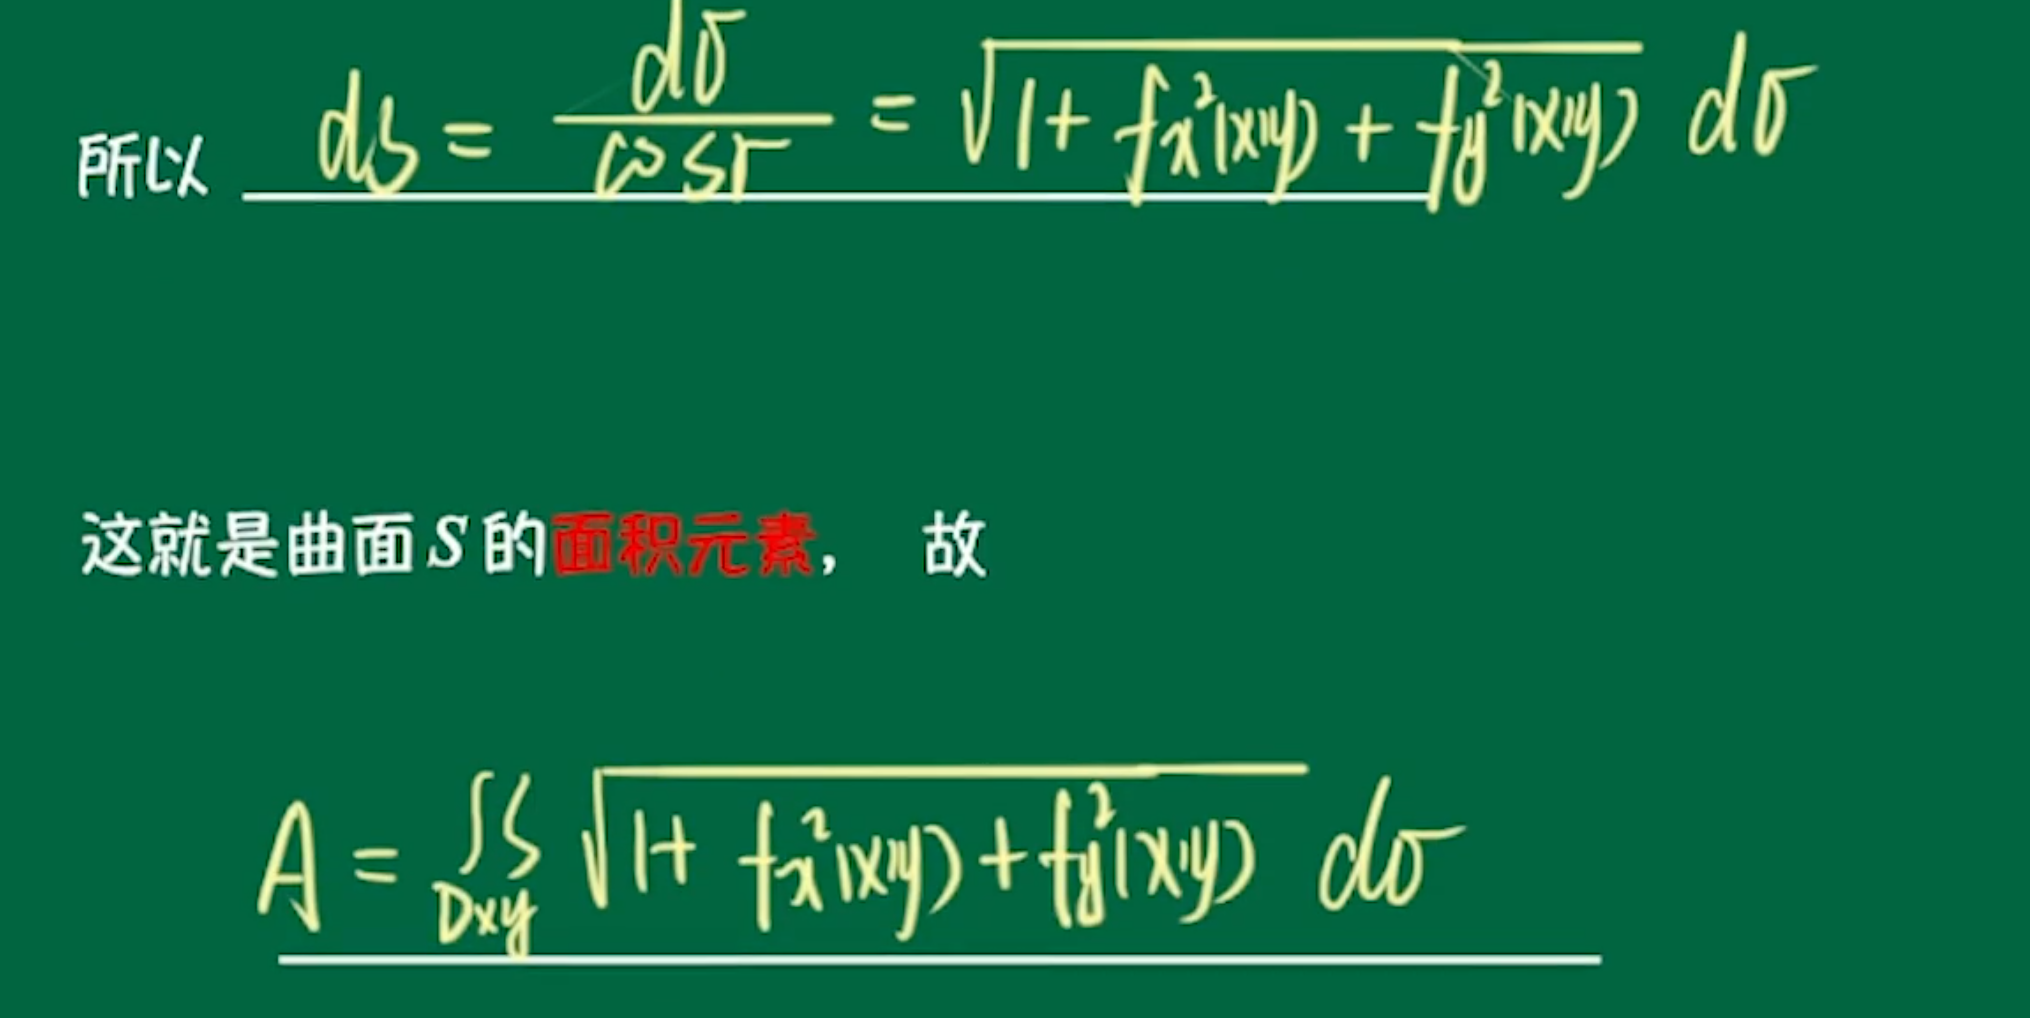 所以 dS = dσ/cosγ = √(1+ fx²(x,y) + fy²(x,y)) dσ
这就是曲面 S 的面积元素， 故
A = ∬Dxy √(1+ fx²(x,y) + fy²(x,y)) dσ